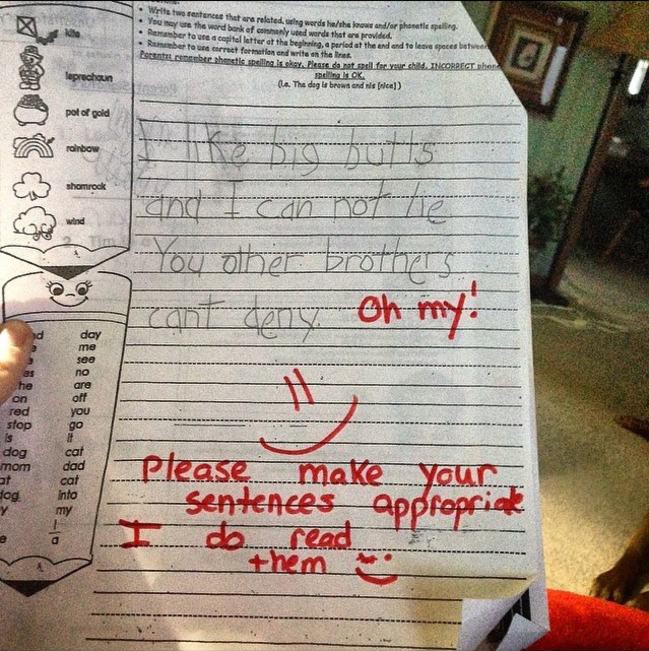 • Write two sentences that are related, using words he/she knows and/or phonetic spelling.
• You may use the word bank of commonly used words that are provided.
• Remember to use a capital letter at the beginning, a period at the end and to leave spaces between
• Remember to use correct formation and write on the lines.
Parents: remember phonetic spelling is okay. Please do not spell for your child. INCORRECT
spelling is OK.
(i.e. The dog is brown and nis [nice] )
kite
leprechaun
pot of gold
rainbow
shamrock
wind
I like big butts
and I can not lie
You other brothers
cant deny. Oh my!
Please make your
sentences appropriate
I do read
them
day
me
see
as no
he are
on off
red you
stop go
is it
dog cat
mom dad
at cat
dog into
my
I
a